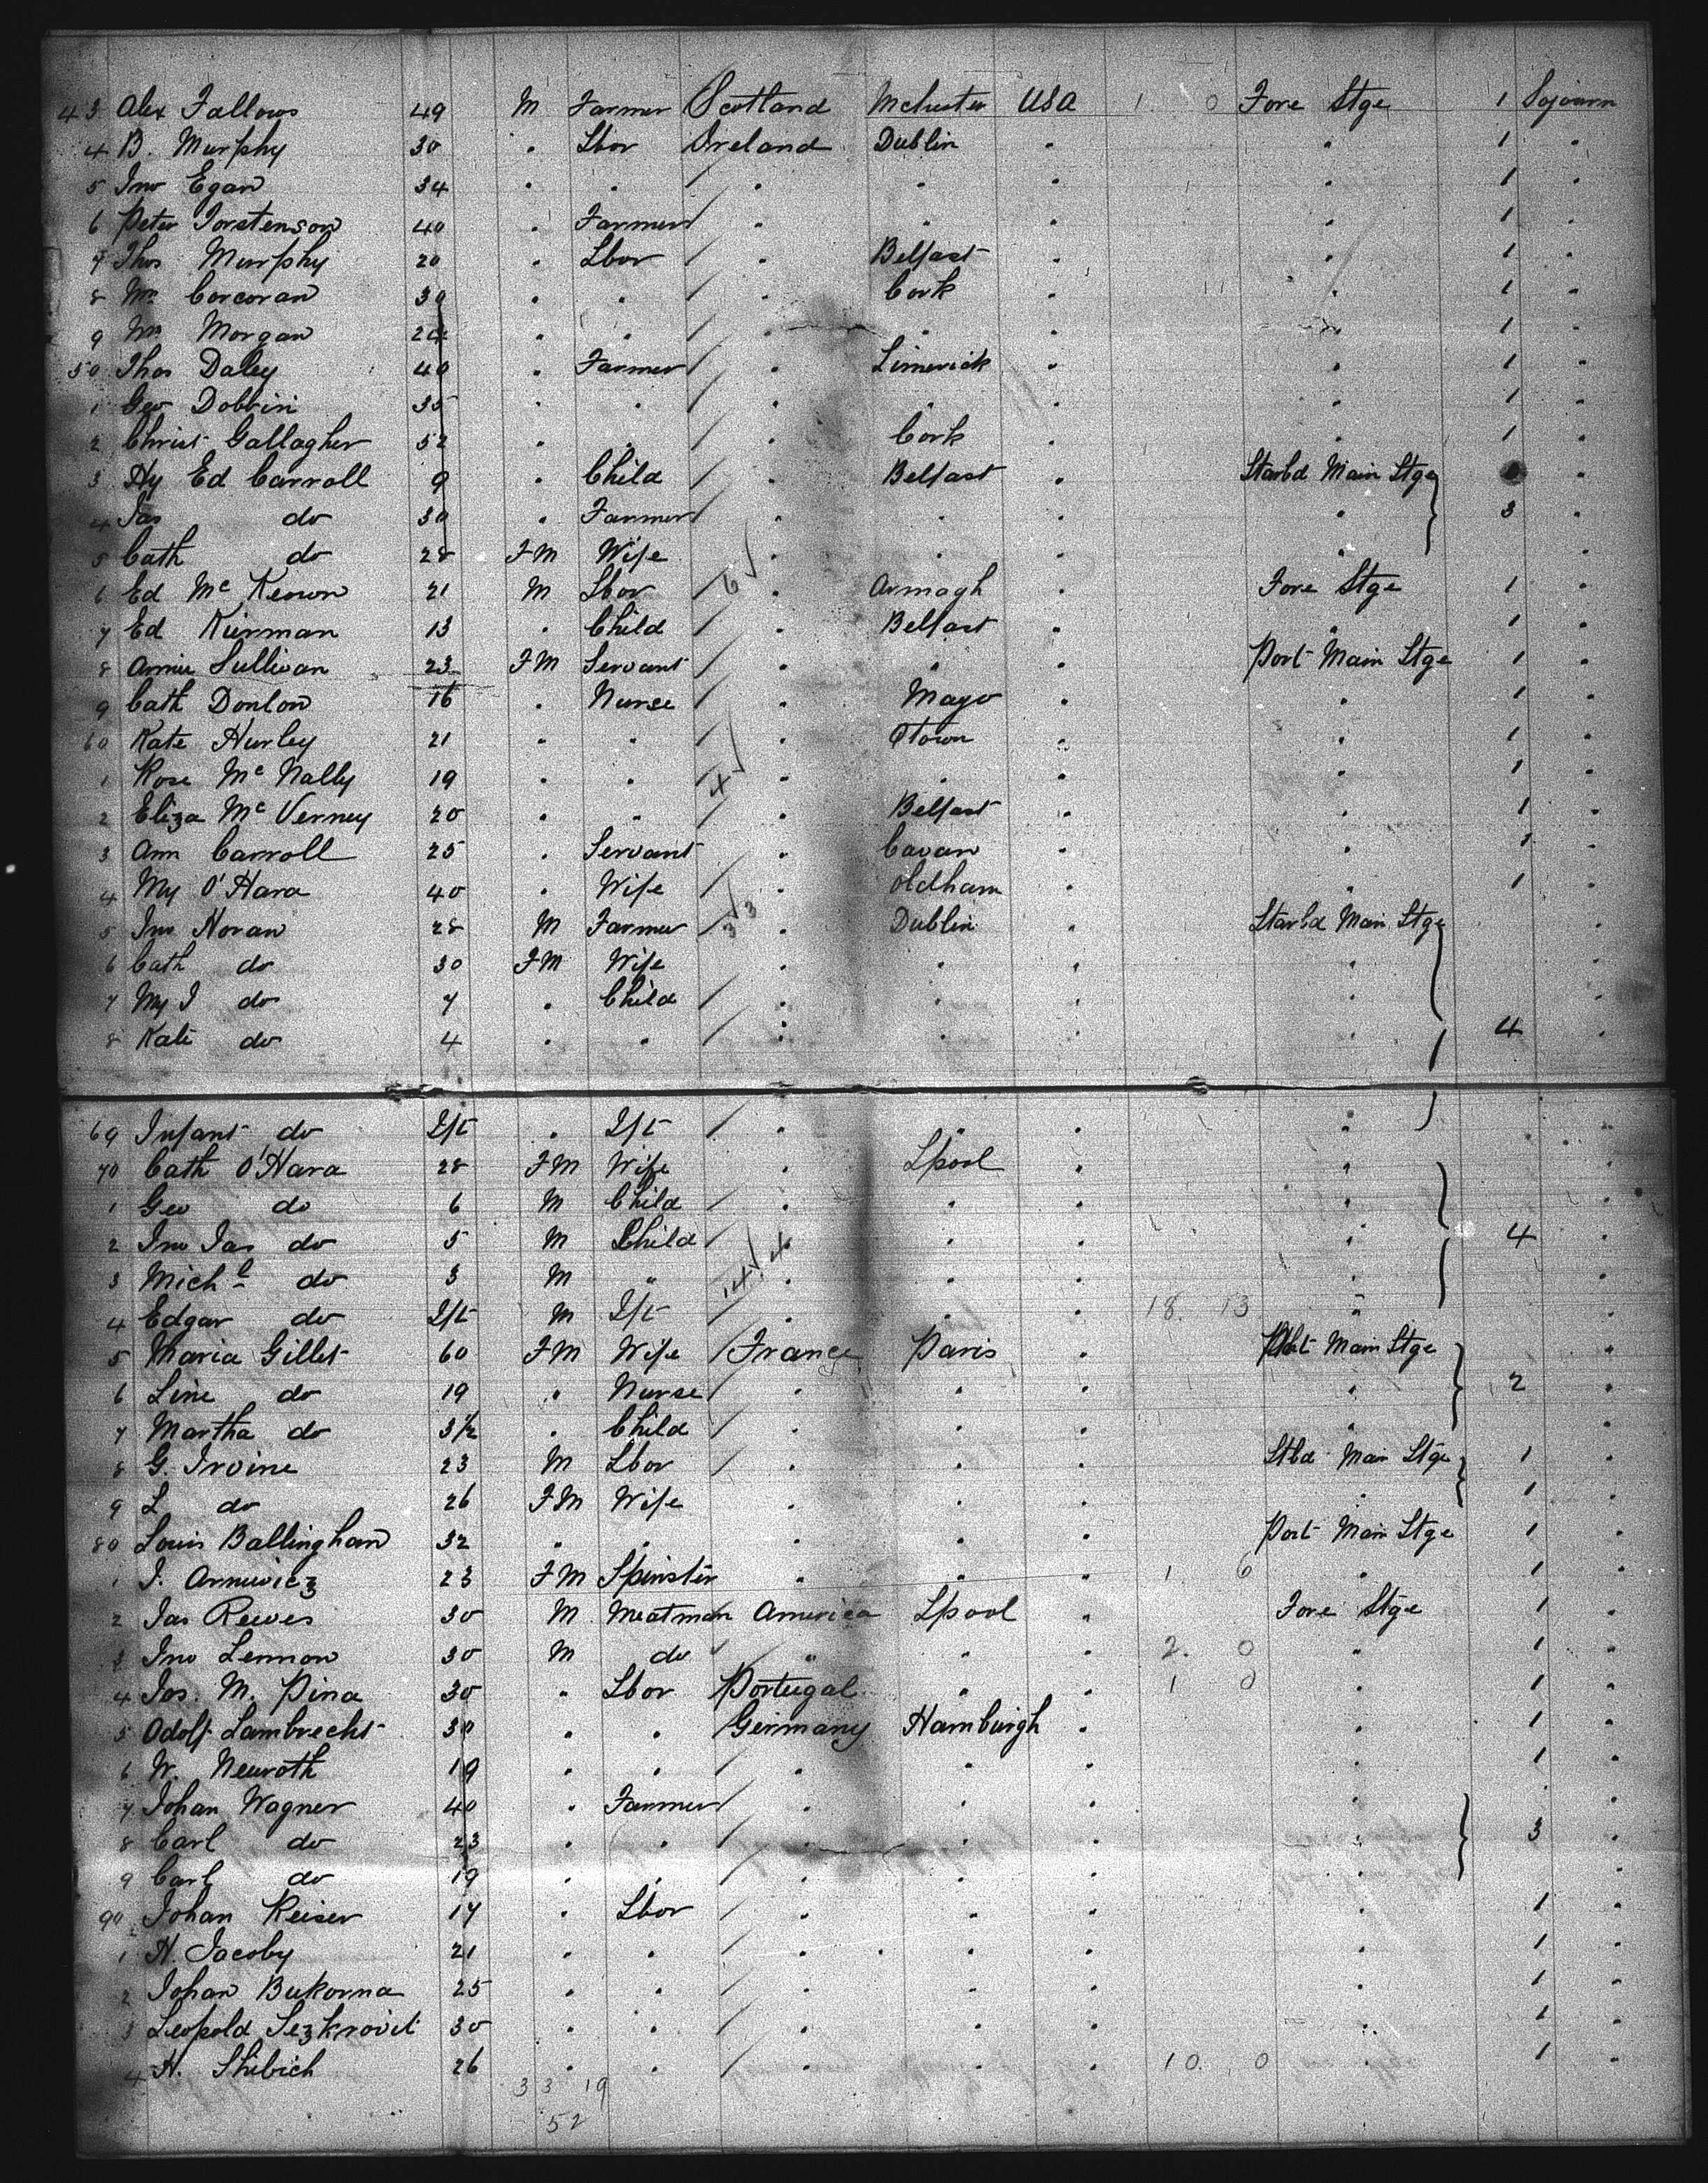 43 Alex Fallows 49 M Farmer Scotland Mchester USA 1. 0 Fore Stge 1 Sojourn
4 B. Murphy 30 " Lbor Ireland Dublin " " 1 "
5 Jno Egan 34 " " " " " " 1 "
6 Peter Torstenson 40 " Farmer " " " " 1 "
7 Thos Murphy 20 " Lbor " Belfast " " 1 "
8 Wm Corcoran 30 " " " Cork " " 1 "
9 Wm Morgan 24 " " " " " " 1 "
50 Thos Daley 40 " Farmer " Limerick " " 1 "
1 Geo Dobbin 35 " " " " " " 1 "
2 Christ Gallagher 52 " " " Cork " " 1 "
3 Hy Ed Carroll 9 " Child " Belfast " Starbd Main Stge "
4 Jas do 30 " Farmer " " " " 3 "
5 Cath do 28 FM Wife " " " " "
6 Ed McKeown 21 M Lbor 6 " Armagh " Fore Stge 1 "
7 Ed Kiernan 13 " Child " Belfast " " 1 "
8 Annie Sullivan 23 FM Servant " " " Port Main Stge 1 "
9 Cath Donlon 16 " Nurse " Mayo " " 1 "
60 Kate Hurley 21 " " " Qtown " " 1 "
1 Rose McNally 19 " " 4 " " " " 1 "
2 Eliza McVerney 20 " " " Belfast " " 1 "
3 Ann Carroll 25 " Servant " Cavan " " 1 "
4 My O'Hara 40 " Wife " Oldham " " 1 "
5 Jno Horan 28 M Farmer 3 3 " Dublin " Starbd Main Stge "
6 Cath do 30 FM Wife " " " " "
7 My J do 7 " Child " " " " "
8 Kate do 4 " " " " " " 4 "
69 Infant do Ift " Ift " " " " "
70 Cath O'Hara 28 FM Wife " Lpool " " "
1 Geo do 6 M Child " " " " "
2 Jno Jas do 5 M Child 4 " " " 4 "
3 Michl do 3 M " 14 " " " " "
4 Edgar do Ift M Ift " " " 18. 13 "
5 Maria Gillet 60 FM Wife France Paris " Port Main Stge "
6 Line do 19 " Nurse " " " " 2 "
7 Martha do 3½ " Child " " " " "
8 G. Irvine 23 M Lbor " " " Stbd Main Stge 1 "
9 L do 26 FM Wife " " " " 1 "
80 Louis Ballingham 32 " " " " " Port Main Stge 1 "
1 J. Arnuwicz 23 FM Spinster " " " 1. 6 " 1 "
2 Jas Reeves 30 M Meatman America Lpool " Fore Stge 1 "
3 Jno Lennon 30 M do " " " 2. 0 " 1 "
4 Jos. M. Pina 30 " Lbor Portugal " " 1 0 " 1 "
5 Adolf Lambrecht 30 " " Germany Hamburgh " " 1 "
6 W. Neuroth 19 " " " " " " 1 "
7 Johan Wagner 40 " Farmer " " " " "
8 Carl do 23 " " " " " " 3 "
9 Carl do 19 " " " " " " "
90 Johan Reiser 17 " Lbor " " " " 1 "
1 H. Jacoby 21 " " " " " " 1 "
2 Johan Bukorna 25 " " " " " " 1 "
3 Leopold 30 " " " " " " 1 "
4 H. Shibich 26 " " " " " 10. 0 " 1 "
33 19
52